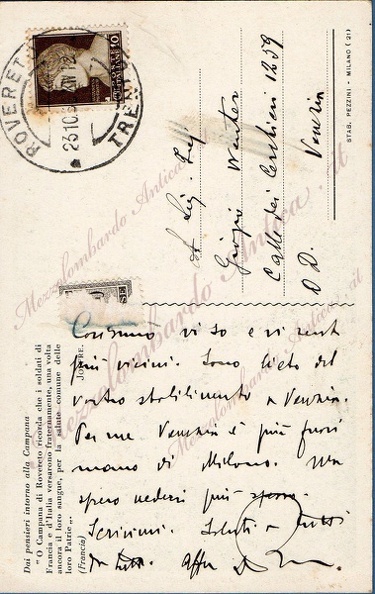 ROVERETO
TRENTO
23.10.
POSTE ITALIANE
10
STAB. PEZZINI - MILANO (21)
Al Sig. Prof
Giorgio
Calle dei Cerchieri 1259
Venezia
D D.
Mezzolombardo Antica .it
Così sono vi so e vi
più vicini. Sono lieto del
vostro stabilimento a Venezia
Per me Venezia è più fuori
mano di Milano. Ma
spero vedervi più spesso.
Scrivimi. Saluti a tutti
da tutti. Affm
Dai pensieri intorno alla Campana
"O Campana di Rovereto ricorda che i soldati di
Francia e d'Italia versarono fraternamente, una volta
ancora il loro sangue, per la salute comune delle
loro Patrie".
(Francia)
JOFFRE.